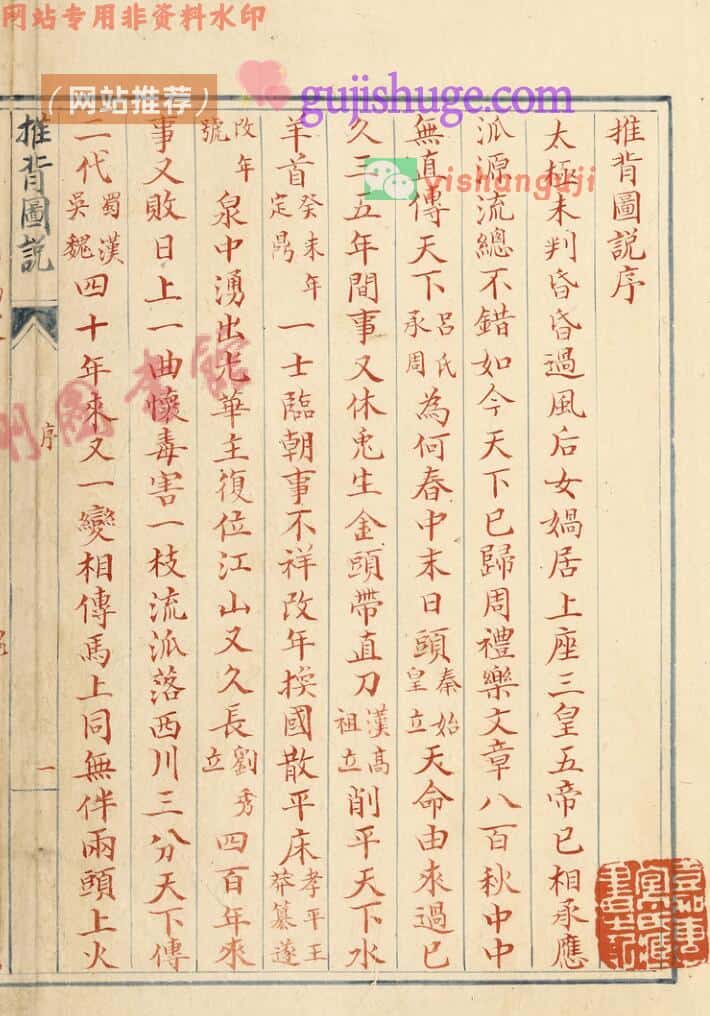 网站专用非资料水印
(网站推荐)
gujishuge.com
yishanguji
推背圖説序
太極未判昏昏過風后女媧居上座三皇五帝已相承應
派源流總不錯如今天下已歸周禮樂文章八百秋中中
無直傳天下呂氏承周為何春中末日頭秦始皇立天命由來過已
久三五年間事又休兎生金頭帶直刀漢高祖立削平天下水
羊首癸未年定鼎一士臨朝事不祥改年換國散平床孝平王莽纂遂
改年號泉中湧出光華主復位江山又久長劉秀立四百年來
事又敗日上一曲懷毒害一枝流派落西川三分天下傳
二代蜀漢吳魏四十年來又一變相傳馬上同無伴兩頭上火
推背圖説
序
一